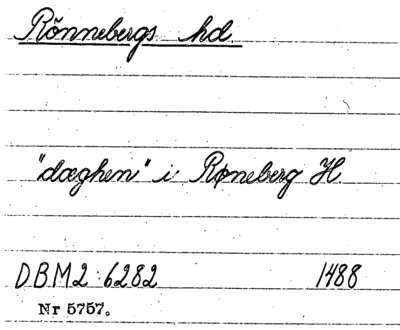 Rönnebergs hd.
"dæghen" i Røneberg H.
DBM2:6282 1488
Nr 5757.